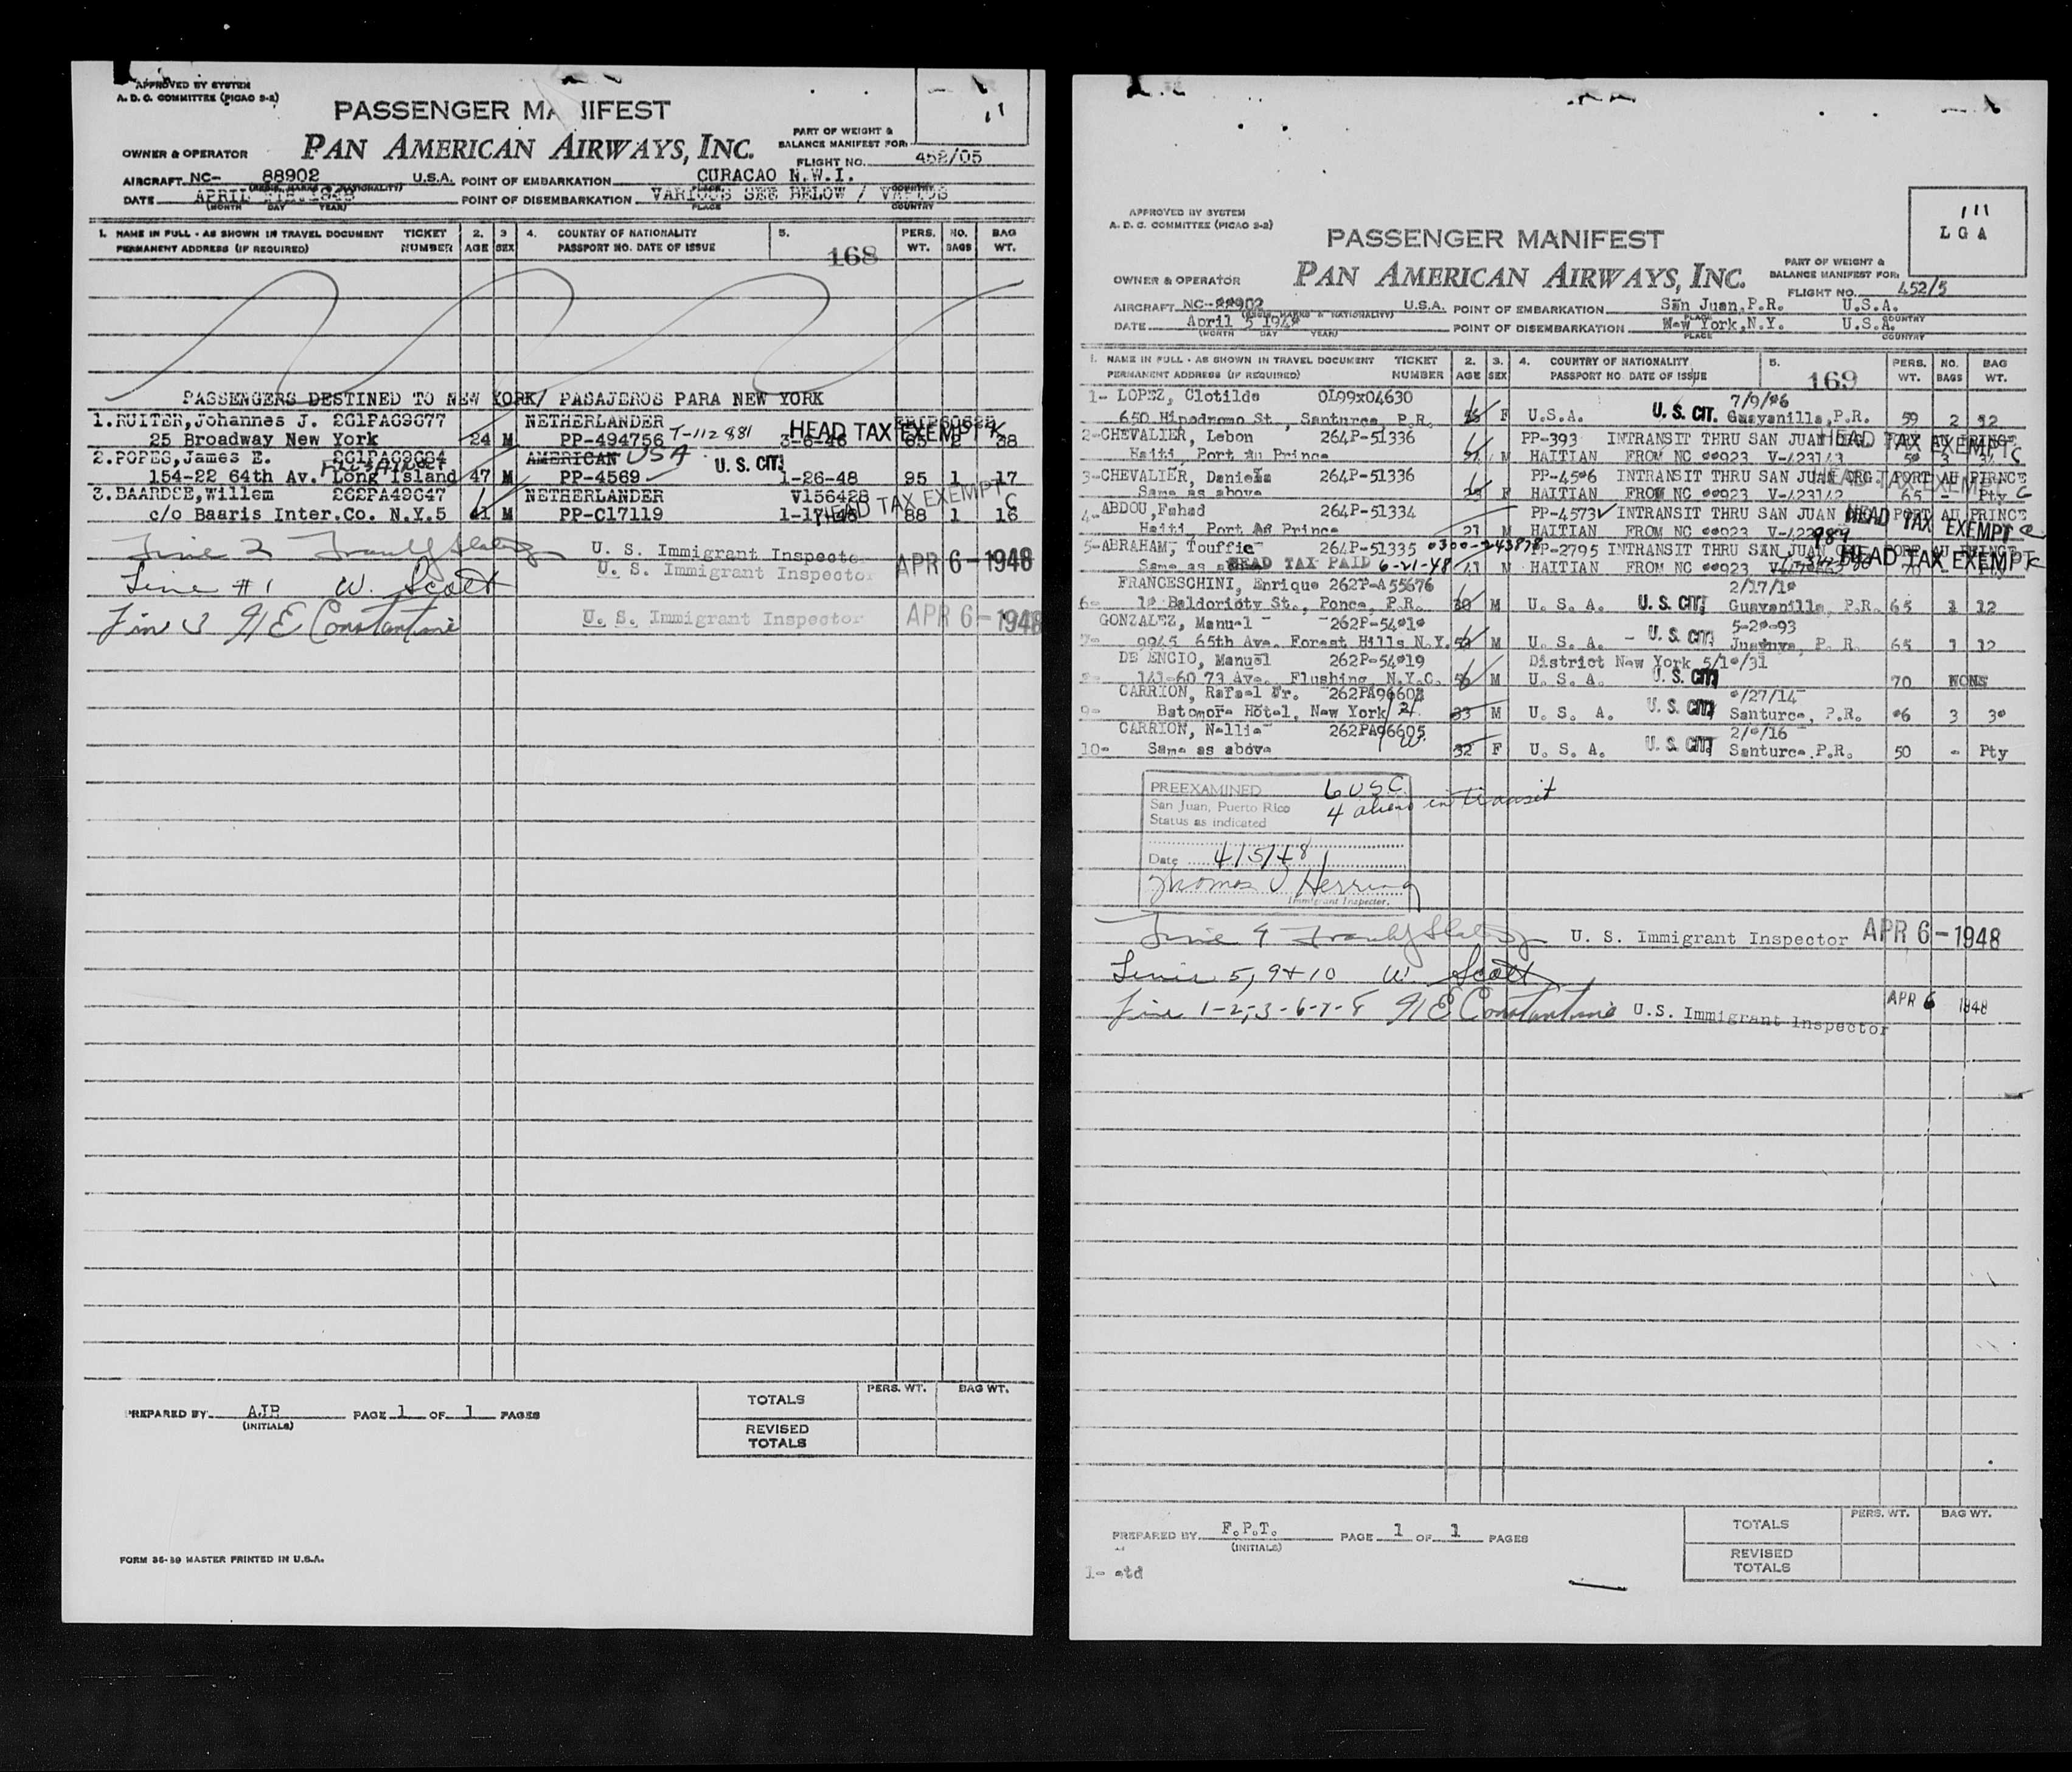 APPROVED BY SYSTEM
A. D. C. COMMITTEE (PICAO 2-2)
PASSENGER MANIFEST
PAN AMERICAN AIRWAYS, INC.
PART OF WEIGHT &
BALANCE MANIFEST FOR:
OWNER & OPERATOR
FLIGHT NO. 452/05
AIRCRAFT NC- 88902 U.S.A. POINT OF EMBARKATION CURACAO N.W.I.
DATE APRIL POINT OF DISEMBARKATION VARIOUS SEE BELOW /
(MONTH DAY YEAR) PLACE COUNTRY
1. NAME IN FULL - AS SHOWN IN TRAVEL DOCUMENT TICKET 2. 3 4. COUNTRY OF NATIONALITY 5. PERS. NO. BAG
PERMANENT ADDRESS (IF REQUIRED) NUMBER AGE SEX PASSPORT NO. DATE OF ISSUE WT. BAGS WT.
168
PASSENGERS DESTINED TO NEW YORK/ PASAJEROS PARA NEW YORK
1.RUITER,Johannes J. NETHERLANDER
25 Broadway New York 24 M PP-494756 T-112881 3-6-46 HEAD TAX EXEMPT K 2 38
2.POPES,James E. AMERICAN USA U. S. CIT.
154-22 64th Av. Long Island 47 M PP-4569 1-26-48 95 1 17
3.BAARDSE,Willem NETHERLANDER V156428
c/o Baaris Inter.Co. N.Y.5 41 M PP-C17119 HEAD TAX EXEMPT C 88 1 16
Line 2 U. S. Immigrant Inspector APR 6-1948
U. S. Immigrant Inspector
Line #1 W. Scott
Line 3 H E Constantine U. S. Immigrant Inspector APR 6-1948
TOTALS PERS. WT. BAG WT.
PREPARED BY AJR PAGE 1 OF 1 PAGES
(INITIALS)
REVISED
TOTALS
FORM 36-59 MASTER PRINTED IN U.S.A.
111
LGA
APPROVED BY SYSTEM
A. D. C. COMMITTEE (PICAO 2-2)
PASSENGER MANIFEST
PAN AMERICAN AIRWAYS, INC.
PART OF WEIGHT &
BALANCE MANIFEST FOR:
OWNER & OPERATOR
FLIGHT NO. 452/5
AIRCRAFT NC-88902 U.S.A. POINT OF EMBARKATION San Juan,P.R. U.S.A.
DATE April 5 1948 POINT OF DISEMBARKATION New York,N.Y. U.S.A.
(MONTH DAY YEAR) PLACE COUNTRY
1. NAME IN FULL - AS SHOWN IN TRAVEL DOCUMENT TICKET 2. 3. 4. COUNTRY OF NATIONALITY 5. PERS. NO. BAG
PERMANENT ADDRESS (IF REQUIRED) NUMBER AGE SEX PASSPORT NO DATE OF ISSUE WT. BAGS WT.
169
1- LOPEZ, Clotilde OL99x04630 7/9/
650 Hipodromo St., Santurce, P.R. F U.S.A. U.S. CIT. Guayanilla,P.R. 59 2
2-CHEVALIER, Lebon 264P-51336 PP-393 INTRANSIT THRU SAN JUAN HEAD TAX EXEMPT C
Haiti, Port Au Prince M HAITIAN FROM NC 88923 V-423143
3-CHEVALIER, Daniela 264P-51336 PP-4586 INTRANSIT THRU SAN JUAN ORG. PORT AU PRINCE
Same as above F HAITIAN FROM NC 88923 V-423142 65 - Pty C
4-ABDOU,Fahad 264P-51334 PP-4573 INTRANSIT THRU SAN JUAN
Haiti, Port Au Prince M HAITIAN FROM NC 88923 HEAD TAX EXEMPT C
5-ABRAHAM, Touffic 264P-51335 PP-2795 INTRANSIT THRU SAN JUAN
Same as HEAD TAX PAID 6-21-48 M HAITIAN FROM NC 88923 HEAD TAX EXEMPT K
FRANCESCHINI, Enrique 262P-A55676 2/17/18
6- 18 Baldorioty St., Ponce, P.R. M U. S. A. U. S. CIT. Guayanilla, P.R. 65 1 12
GONZALEZ, Manuel 262P-54818 5-28-93
7- 9945 65th Ave. Forest Hills N.Y. M U. S. A. U. S. CIT. P. R. 65 1 12
DE ENCIO, Manuel 262P-54819 District New York 5/18/31
8- 141-60 73 Ave. Flushing, N.Y.C. 56 M U. S. A. U. S. CIT. 70 NONE
CARRION, Rafael Jr. 262PA96602 8/27/14
9- Hotel, New York 33 M U. S. A. U. S. CIT. Santurce, P.R. 86 3 38
CARRION, Nellie 262PA96605 2/8/16
10- Same as above 32 F U. S. A. U. S. CIT. Santurce P.R. 50 - Pty
PREEXAMINED 6 USC
San Juan, Puerto Rico 4 aliens in transit
Status as indicated
Date 4/5/48
Thomas J Herring
Immigrant Inspector.
Line 4 U. S. Immigrant Inspector APR 6-1948
Lines 5, 9+10 W. Scott
Line 1-2,3-6-7-8 H E Constantine U.S. Immigrant Inspector APR 6 1948
TOTALS PERS. WT. BAG WT.
PREPARED BY F.P.T. PAGE 1 OF 1 PAGES
(INITIALS)
REVISED
TOTALS
1- std